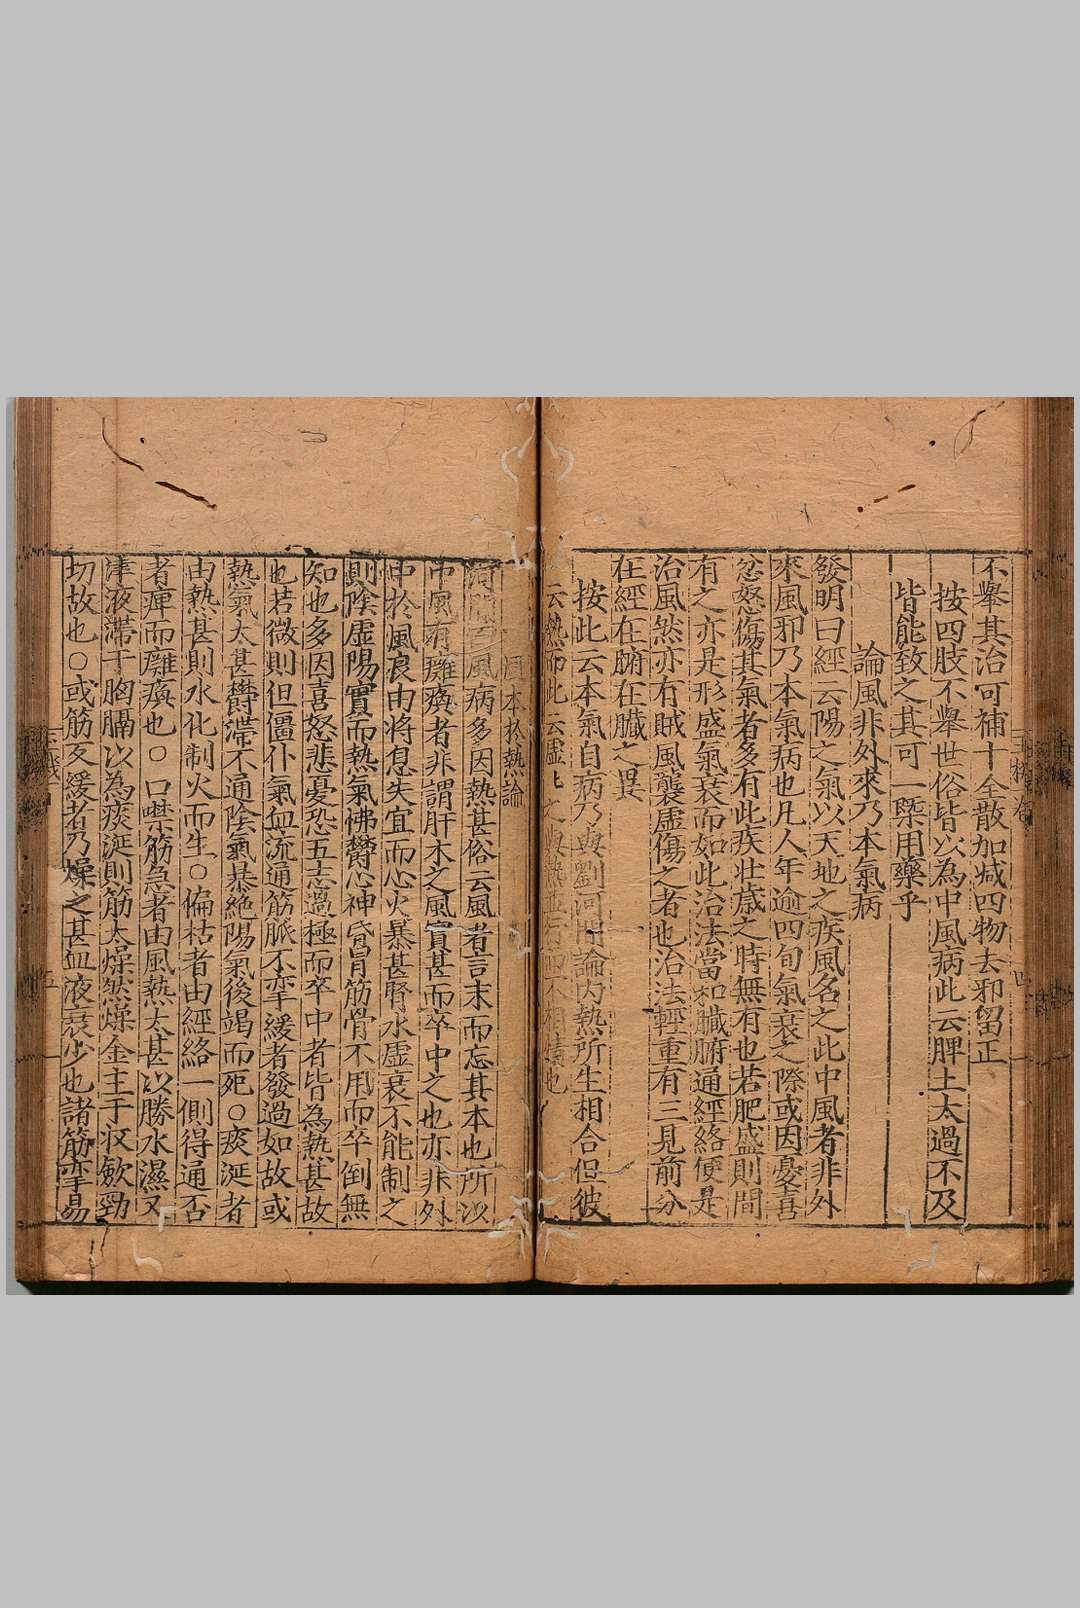 不舉其治可補十全散加减四物去邪留正
按四肢不舉世俗皆以為中風病此云脾土太過不及
皆能致之其可一槩用藥乎
論風非外來乃本氣病
發明曰經云陽之氣以天地之疾風名之此中風者非外
來風邪乃本氣病也凡人年逾四旬氣衰之際或因憂喜
忿怒傷其氣者多有此疾壯歲之時無有也若肥盛則間
有之亦是形盛氣衰而如此治法當和臟腑通經絡便是
治風然亦有賊風襲虛傷之者也治法輕重有三見前分
在經在腑在臟之異
按此云本氣自病乃與劉河間論内熱所生相合但彼
云熱而此云虛
本於熱論
風病多因熱甚俗云風者言末而忘其本也所以
中風有癱瘓者非謂肝木之風實甚而卒中之也亦非外
中於風良由將息失宜而心火暴甚腎水虛衰不能制之
則陰虛陽實而熱氣怫鬱心神昏冒筋骨不用而卒倒無
知也多因喜怒悲憂恐五志過極而卒中者皆為熱甚故
也若微則但僵仆氣血流通筋脈不攣緩者發過如故或
熱氣太甚鬱滯不通陰氣暴絶陽氣後竭而死○痰涎者
由熱甚則水化制火而生○偏枯者由經絡一側得通否
者痺而癱瘓也○口噤筋急者由風熱太甚以勝水濕又
津液滯于胸膈以為痰涎則筋太燥然燥金主于收歛勁
切故也○或筋反緩者乃燥之甚血液衰少也諸筋攣易